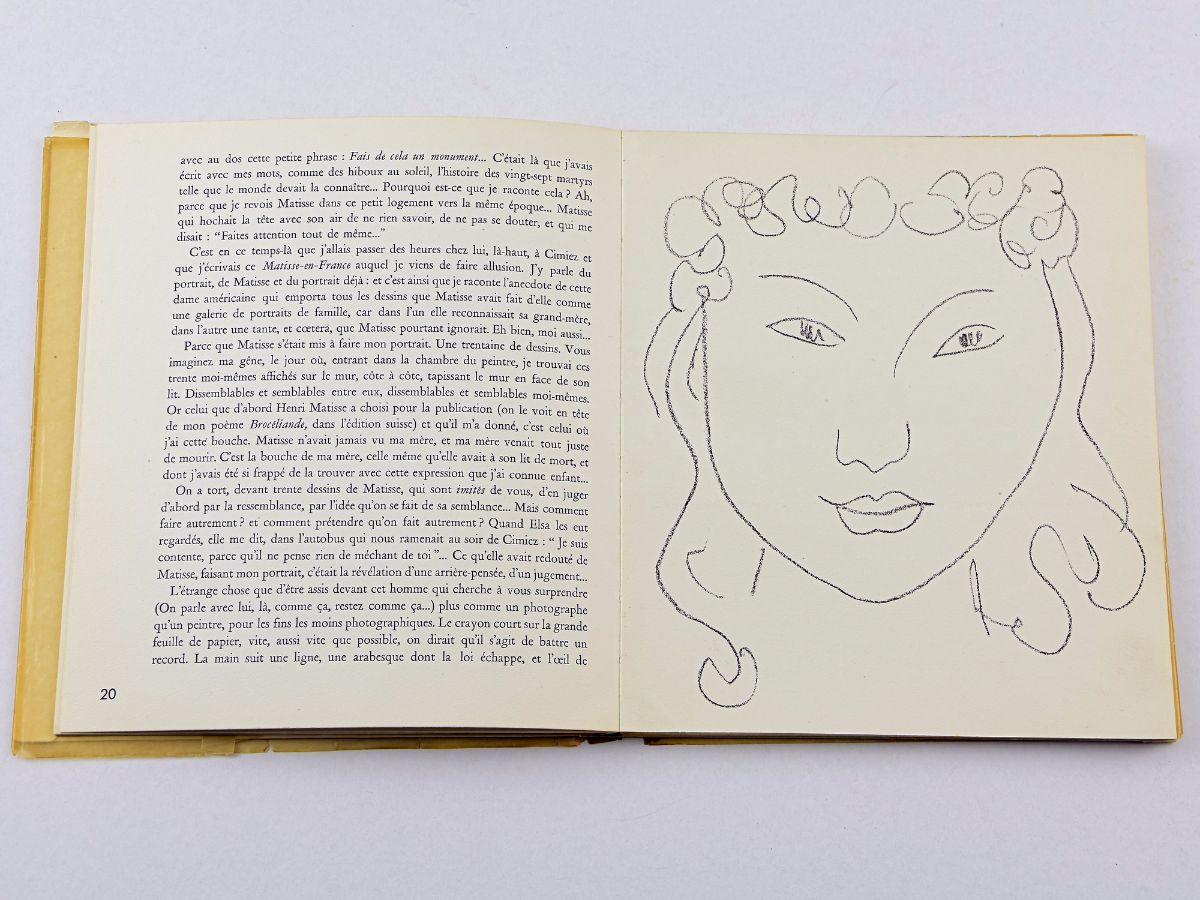 avec au dos cette petite phrase : Fais de cela un monument... C'était là que j'avais
écrit avec mes mots, comme des hiboux au soleil, l'histoire des vingt-sept martyrs
telle que le monde devait la connaître... Pourquoi est-ce que je raconte cela ? Ah,
parce que je revois Matisse dans ce petit logement vers la même époque... Matisse
qui hochait la tête avec son air de ne rien savoir, de ne pas se douter, et qui me
disait : “Faites attention tout de même...”
C'est en ce temps-là que j'allais passer des heures chez lui, là-haut, à Cimiez et
que j'écrivais ce Matisse-en-France auquel je viens de faire allusion. J'y parle du
portrait, de Matisse et du portrait déjà : et c'est ainsi que je raconte l'anecdote de cette
dame américaine qui emporta tous les dessins que Matisse avait fait d'elle comme
une galerie de portraits de famille, car dans l'un elle reconnaissait sa grand-mère,
dans l'autre une tante, et cœtera, que Matisse pourtant ignorait. Eh bien, moi aussi...
Parce que Matisse s'était mis à faire mon portrait. Une trentaine de dessins. Vous
imaginez ma gêne, le jour où, entrant dans la chambre du peintre, je trouvai ces
trente moi-mêmes affichés sur le mur, côte à côte, tapissant le mur en face de son
lit. Dissemblables et semblables entre eux, dissemblables et semblables moi-mêmes.
Or celui que d'abord Henri Matisse a choisi pour la publication (on le voit en tête
de mon poème Brocéliande, dans l'édition suisse) et qu'il m'a donné, c'est celui où
j'ai cette bouche. Matisse n'avait jamais vu ma mère, et ma mère venait tout juste
de mourir. C'est la bouche de ma mère, celle même qu'elle avait à son lit de mort, et
dont j'avais été si frappé de la trouver avec cette expression que j'ai connue enfant...
On a tort, devant trente dessins de Matisse, qui sont imités de vous, d'en juger
d'abord par la ressemblance, par l'idée qu'on se fait de sa semblance... Mais comment
faire autrement ? et comment prétendre qu'on fait autrement ? Quand Elsa les eut
regardés, elle me dit, dans l'autobus qui nous ramenait au soir de Cimiez : “ Je suis
contente, parce qu'il ne pense rien de méchant de toi ”... Ce qu'elle avait redouté de
Matisse, faisant mon portrait, c'était la révélation d'une arrière-pensée, d'un jugement...
L'étrange chose que d'être assis devant cet homme qui cherche à vous surprendre
(On parle avec lui, là, comme ça, restez comme ça...) plus comme un photographe
qu'un peintre, pour les fins les moins photographiques. Le crayon court sur la grande
feuille de papier, vite, aussi vite que possible, on dirait qu'il s'agit de battre un
record. La main suit une ligne, une arabesque dont la loi échappe, et l'œil de
20